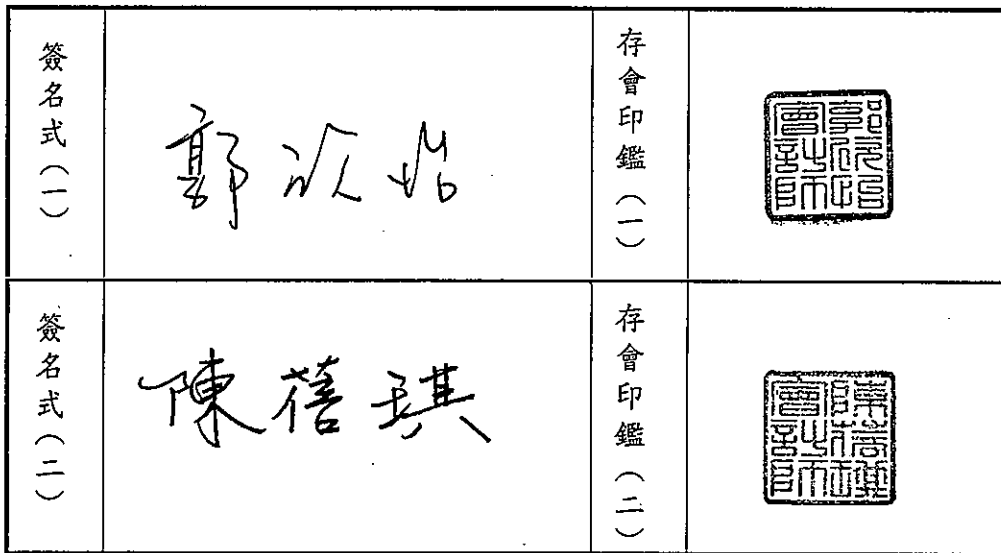 簽名式（一）
郭欣怡
存會印鑑（一）
郭欣怡會計師
簽名式（二）
陳蓓琪
存會印鑑（二）
陳蓓琪會計師